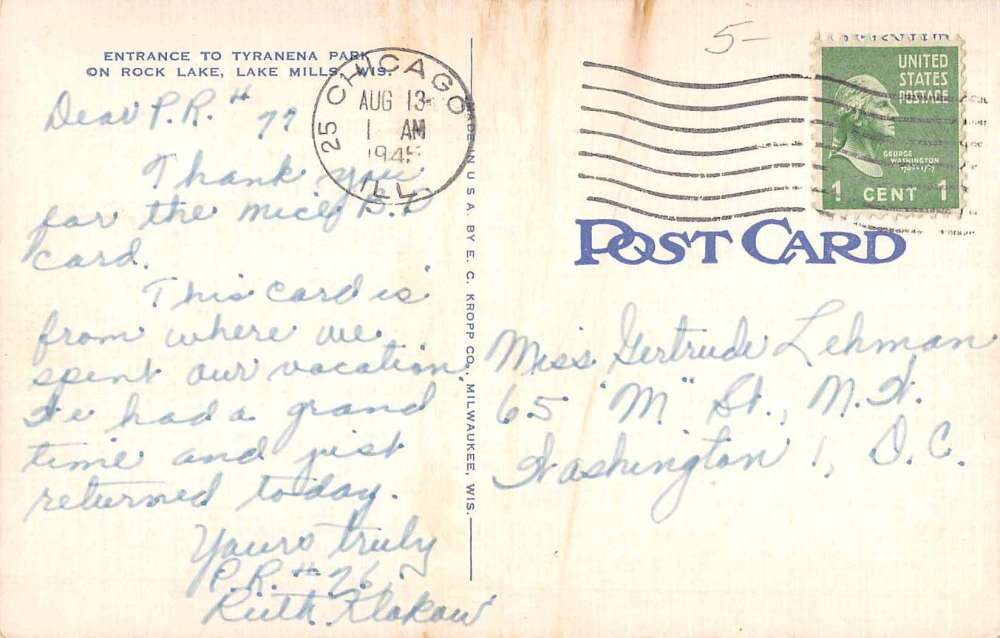 ENTRANCE TO TYRANENA PARK
ON ROCK LAKE, LAKE MILLS, WIS.
Dear P.R. # 77
Thank you
for the nice B.D
card.
This card is
from where we
spent our vacation.
We had a grand
time and just
returned today.
Yours truly
P.R. # 26
Ruth
MADE IN U.S.A. BY E. C. KROPP CO., MILWAUKEE, WIS.
CHICAGO
25
AUG 13
1 AM
194
ILL
5-
UNITED
STATES
POSTAGE
GEORGE
WASHINGTON
1 CENT 1
POST CARD
Miss Gertrude Lehman
65 "M" St., N.W.
Washington 1, D.C.